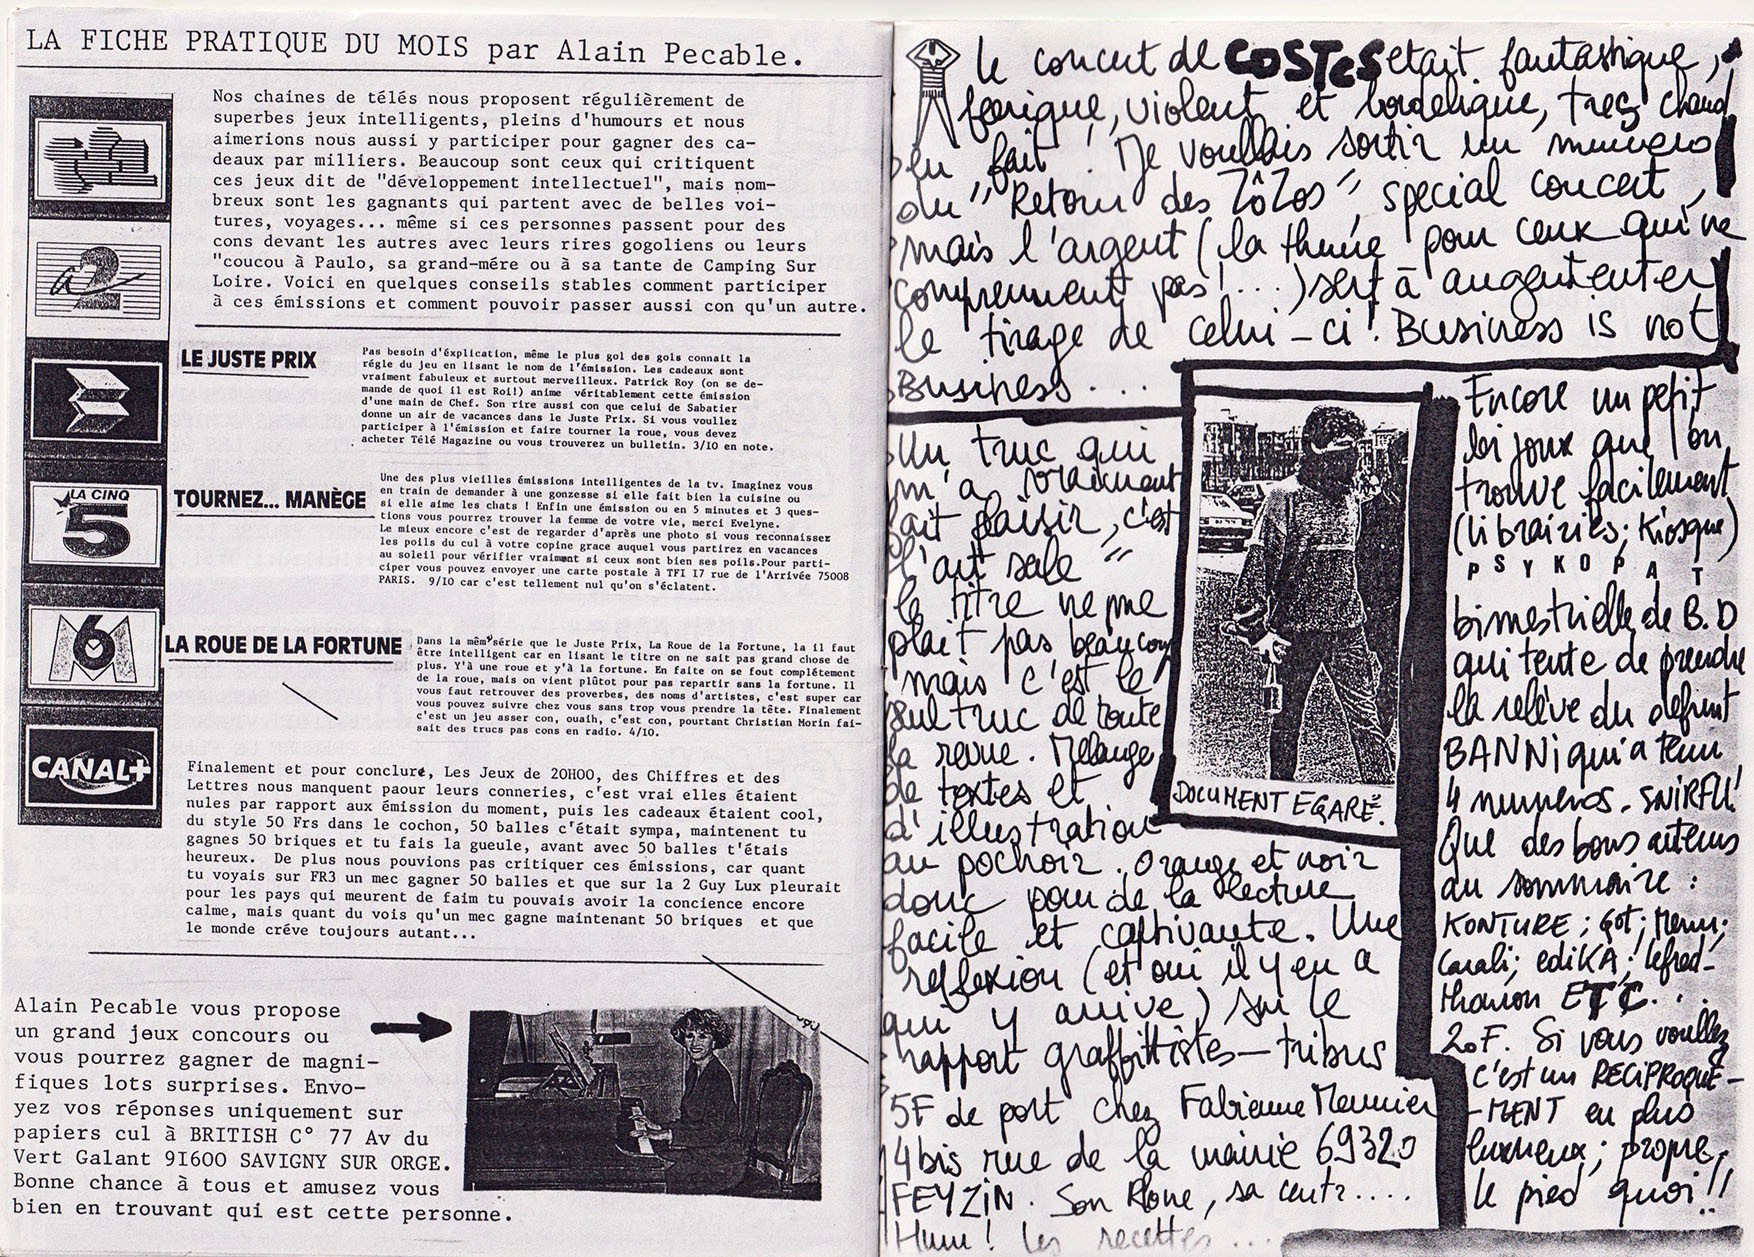 LA FICHE PRATIQUE DU MOIS par Alain Pecable.
Nos chaines de télés nous proposent régulièrement de
superbes jeux intelligents, pleins d'humours et nous
aimerions nous aussi y participer pour gagner des ca-
deaux par milliers. Beaucoup sont ceux qui critiquent
ces jeux dit de "développement intellectuel", mais nom-
breux sont les gagnants qui partent avec de belles voi-
tures, voyages... même si ces personnes passent pour des
cons devant les autres avec leurs rires gogoliens ou leurs
"coucou à Paulo, sa grand-mére ou à sa tante de Camping Sur
Loire. Voici en quelques conseils stables comment participer
à ces émissions et comment pouvoir passer aussi con qu'un autre.
a2
LA CINQ
5
M6
CANAL+
LE JUSTE PRIX
Pas besoin d'éxplication, même le plus gol des gols connait la
régle du jeu en lisant le nom de l'émission. Les cadeaux sont
vraiment fabuleux et surtout merveilleux. Patrick Roy (on se de-
mande de quoi il est Roi!) anime véritablement cette émission
d'une main de Chef. Son rire aussi con que celui de Sabatier
donne un air de vacances dans le Juste Prix. Si vous voullez
participer à l'émission et faire tourner la roue, vous devez
acheter Télé Magazine ou vous trouverez un bulletin. 3/10 en note.
TOURNEZ... MANÈGE
Une des plus vieilles émissions intelligentes de la tv. Imaginez vous
en train de demander à une gonzesse si elle fait bien la cuisine ou
si elle aime les chats ! Enfin une émission ou en 5 minutes et 3 ques-
tions vous pourrez trouver la femme de votre vie, merci Evelyne.
Le mieux encore c'est de regarder d'après une photo si vous reconnaissez
les poils du cul à votre copine grace auquel vous partirez en vacances
au soleil pour vérifier vraiment si ceux sont bien ses poils.Pour parti-
ciper vous pouvez envoyer une carte postale à TFI 17 rue de l'Arrivée 75008
PARIS. 9/10 car c'est tellement nul qu'on s'éclatent.
LA ROUE DE LA FORTUNE
Dans la mêm'série que le Juste Prix, La Roue de la Fortune, la il faut
être intelligent car en lisant le titre on ne sait pas grand chose de
plus. Y'à une roue et y'à la fortune. En faite on se fout complétement
de la roue, mais on vient plûtot pour pas repartir sans la fortune. Il
vous faut retrouver des proverbes, des noms d'artistes, c'est super car
vous pouvez suivre chez vous sans trop vous prendre la tête. Finalement
c'est un jeu asser con, ouaih, c'est con, pourtant Christian Morin fai-
sait des trucs pas cons en radio. 4/10.
Finalement et pour conclure, Les Jeux de 20H00, des Chiffres et des
Lettres nous manquent paour leurs conneries, c'est vrai elles étaient
nules par rapport aux émission du moment, puis les cadeaux étaient cool,
du style 50 Frs dans le cochon, 50 balles c'était sympa, maintenent tu
gagnes 50 briques et tu fais la gueule, avant avec 50 balles t'étais
heureux. De plus nous pouvions pas critiquer ces émissions, car quant
tu voyais sur FR3 un mec gagner 50 balles et que sur la 2 Guy Lux pleurait
pour les pays qui meurent de faim tu pouvais avoir la concience encore
calme, mais quant du vois qu'un mec gagne maintenant 50 briques et que
le monde créve toujours autant...
Alain Pecable vous propose
un grand jeux concours ou
vous pourrez gagner de magni-
fiques lots surprises. Envo-
yez vos réponses uniquement sur
papiers cul à BRITISH C° 77 Av du
Vert Galant 91600 SAVIGNY SUR ORGE.
Bonne chance à tous et amusez vous
bien en trouvant qui est cette personne.
le concert de COSTES etait fantastique,
ferique, violent et bordelique, trez chaud
en fait ! Je voullais sortir un numero
du "Retour des Zôzos", special concert,
mais l'argent (la thune pour ceux qui ne
comprennent pas !...) sert à augententer
le tirage de celui-ci ! Business is not
Business ...
Un truc qui
m'a vraiment
fait plaisir, c'est
"l'art sale"
le titre ne me
plait pas beaucoup
mais c'est le
seul truc de toute
la revue. Melange
de textes et
d'illustration
au pochoir. Orange et noir
donc pour de la lecture
facile et captivante. Une
reflexion (et oui il y en a
qui y arrive) sur le
rapport graffittistes-tribus
5F de port chez Fabienne Meunier
4bis rue de la mairie 69320
FEYZIN. Son Rhone, sa centr....
Hum ! les recettes ...
DOCUMENT EGARÉ.
Encore un petit
bijoux que l'on
trouve facilement
(librairies; Kiosque)
PSYKOPAT
bimestrielle de B.D
qui tente de prendre
la relève du defunt
BANNI qui a tenu
4 numeros. SNIRFU!
Que des bons auteurs
au sommaire :
KONTURE; Got; Menu;
Carali; EDIKA; lefred-
thouron ETC...
20F. Si vous voullez
c'est un RECIPROQUE-
-MENT en plus
luxueux; propre,
le pied quoi!!